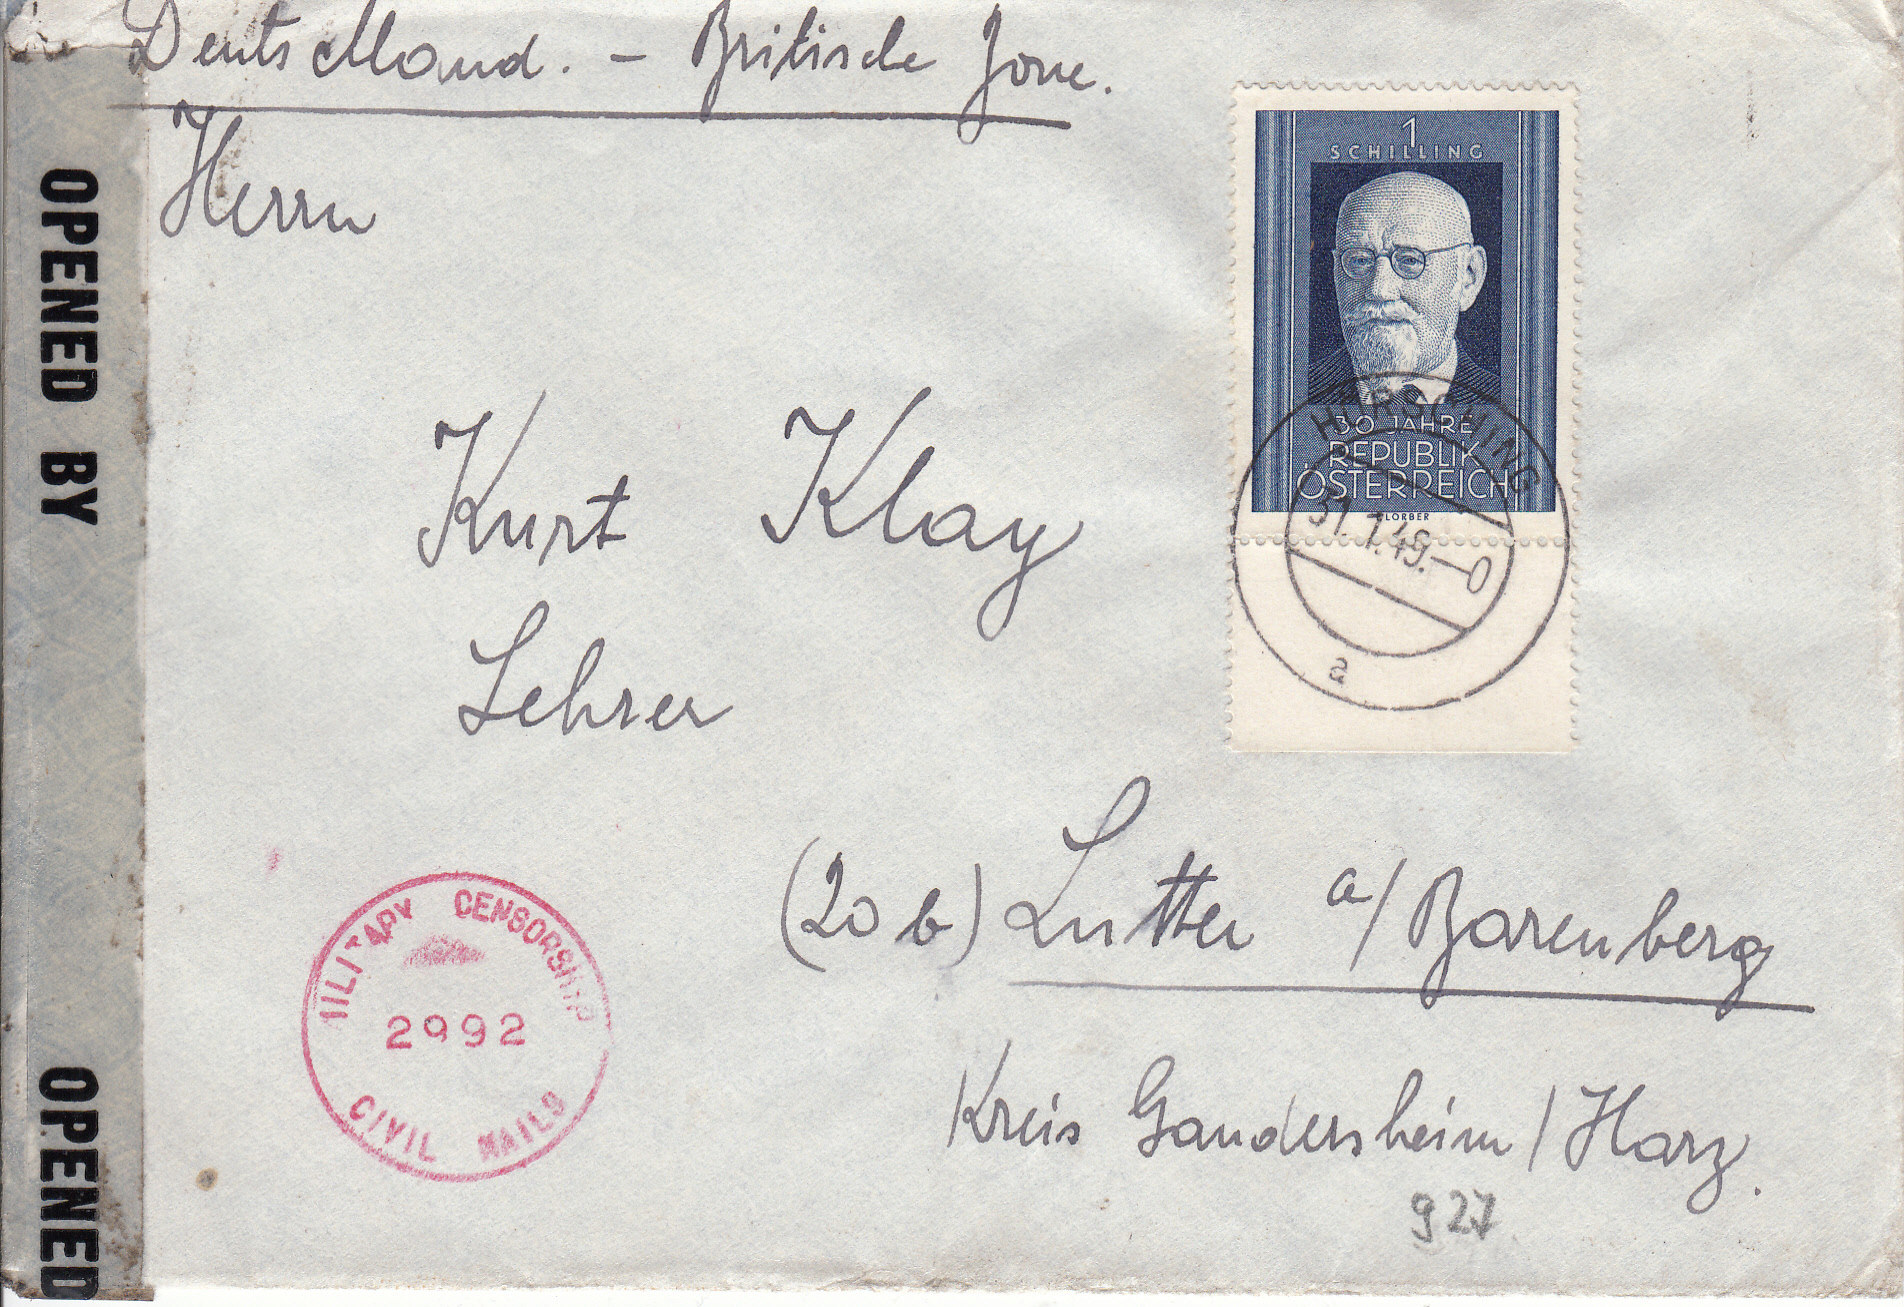 Deutschland. – Britische Zone.
Herrn
Kurt Klay
Lehrer
(20 b) Lutter a/Barenberg
Kreis Gandersheim/Harz.
927
OPENED BY
OPENED
1
SCHILLING
30 JAHRE
REPUBLIK
ÖSTERREICH
LORBER
HÖRSCHING
31.1.49.–0
a
MILITARY CENSORSHIP
2992
CIVIL MAILS